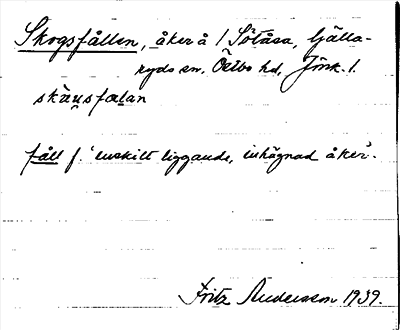 Skogsfållen, åker å 1 Sölåsa, Gälla-
ryds sn. Östbo hd, Jönk. l.
skåusfalan
fåll f. 'enskilt liggande, inhägnad åker'.
Fritz Andersson 1939.